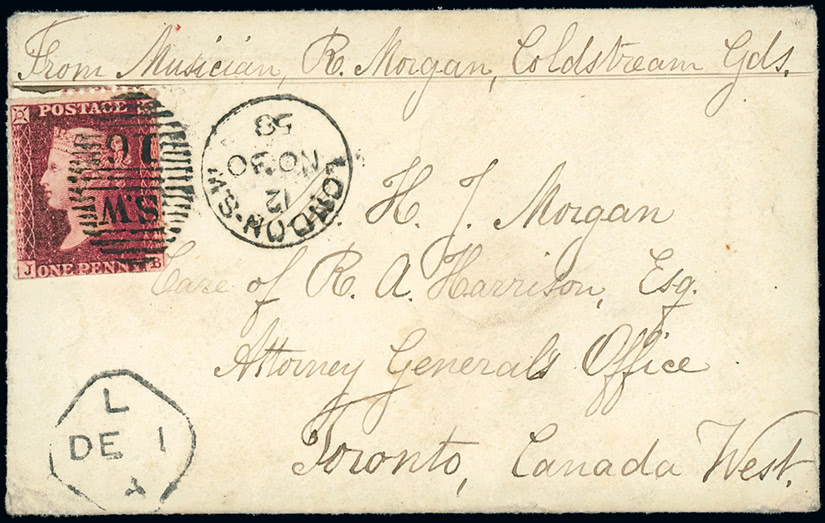 From Musician, R. Morgan, Coldstream Gds.
POSTAGE
S.W
J ONE PENNY B
58
NO 30
12
LONDON·S.W
H. J. Morgan
Care of R. A. Harrison, Esq.
Attorney General's Office
Toronto, Canada West.
L
DE 1